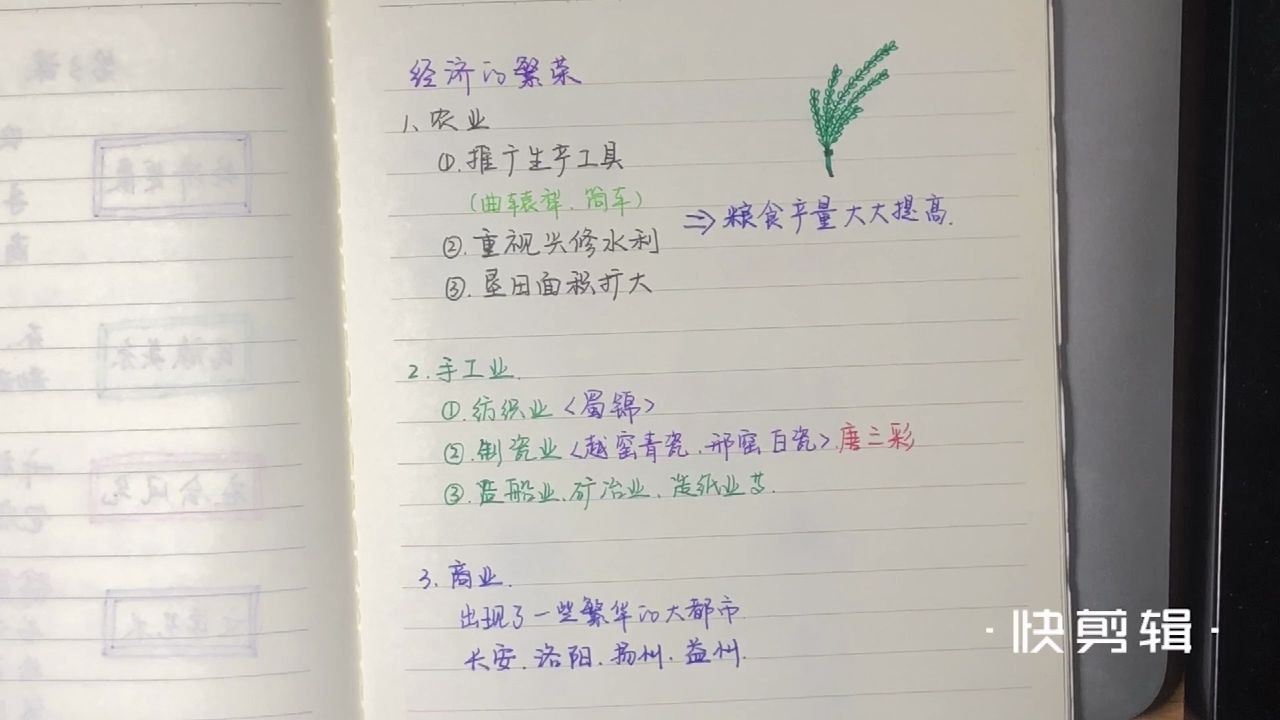 经济的繁荣
1、农业
①.推广生产工具
(曲辕犁、筒车)
⇒粮食产量大大提高.
②.重视兴修水利
③.垦田面积扩大
2.手工业.
①.纺织业<蜀锦>
②.制瓷业<越窑青瓷、邢窑白瓷>.唐三彩
③.造船业、矿冶业、造纸业等.
3.商业.
出现了一些繁华的大都市.
长安.洛阳.扬州.益州.
·快剪辑·